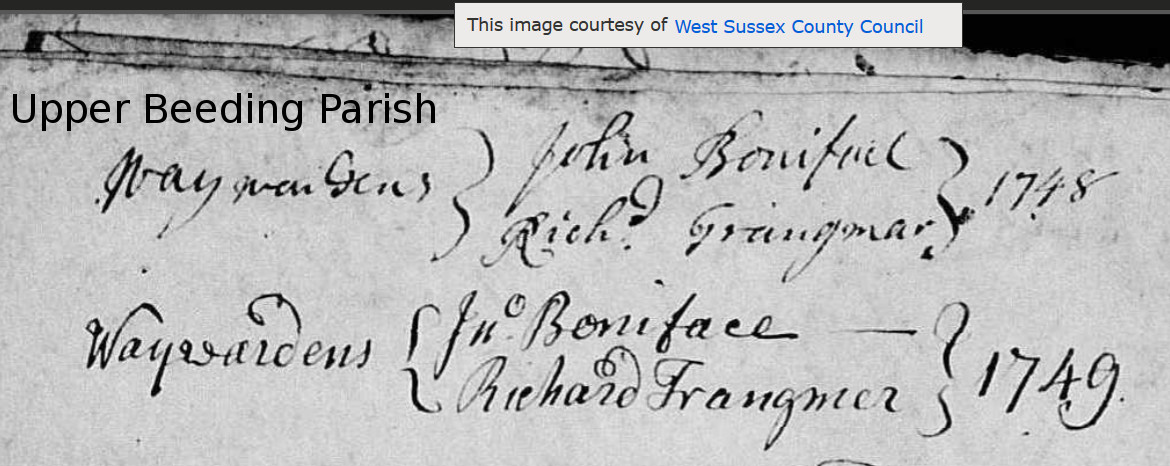 This image courtesy of West Sussex County Council
Upper Beeding Parish
Waywardens } John Boniface } 1748
Rich.d Frangmar
Waywardens { Jn.o Boniface — } 1749
Richard Frangmer